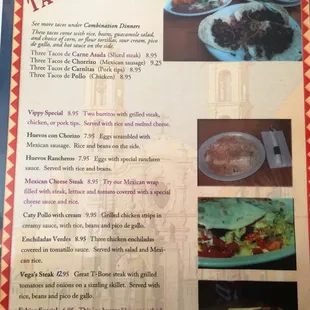 TA
See more tacos under Combination Dinners
These tacos come with rice, beans, guacamole salad,
and choice of corn, or flour tortillas, sour cream, pico
de gallo, and hot sauce on the side.
Three Tacos de Carne Asada (Sliced steak) 8.95
Three Tacos de Chorizo (Mexican sausage) 9.25
Three Tacos de Carnitas (Pork tips) 8.95
Three Tacos de Pollo (Chicken) 8.95
Vippy Special 8.95 Two burritos with grilled steak,
chicken, or pork tips. Served with rice and melted cheese.
Huevos con Chorizo 7.95 Eggs scrambled with
Mexican sausage. Rice and beans on the side.
Huevos Rancheros 7.95 Eggs with special ranchero
sauce. Served with rice and beans.
Mexican Cheese Steak 8.95 Try our Mexican wrap
filled with steak, lettuce and tomato covered with a special
cheese sauce and rice.
Caty Pollo with cream 9.95 Grilled chicken strips in
creamy sauce, with rice, beans and pico de gallo.
Enchiladas Verdes 8.95 Three chicken enchiladas
covered in tomatillo sauce. Served with salad and Mexi-
can rice.
Vega's Steak 12.95 Great T-Bone steak with grilled
tomatoes and onions on a sizzling skillet. Served with
rice, beans and pico de gallo.